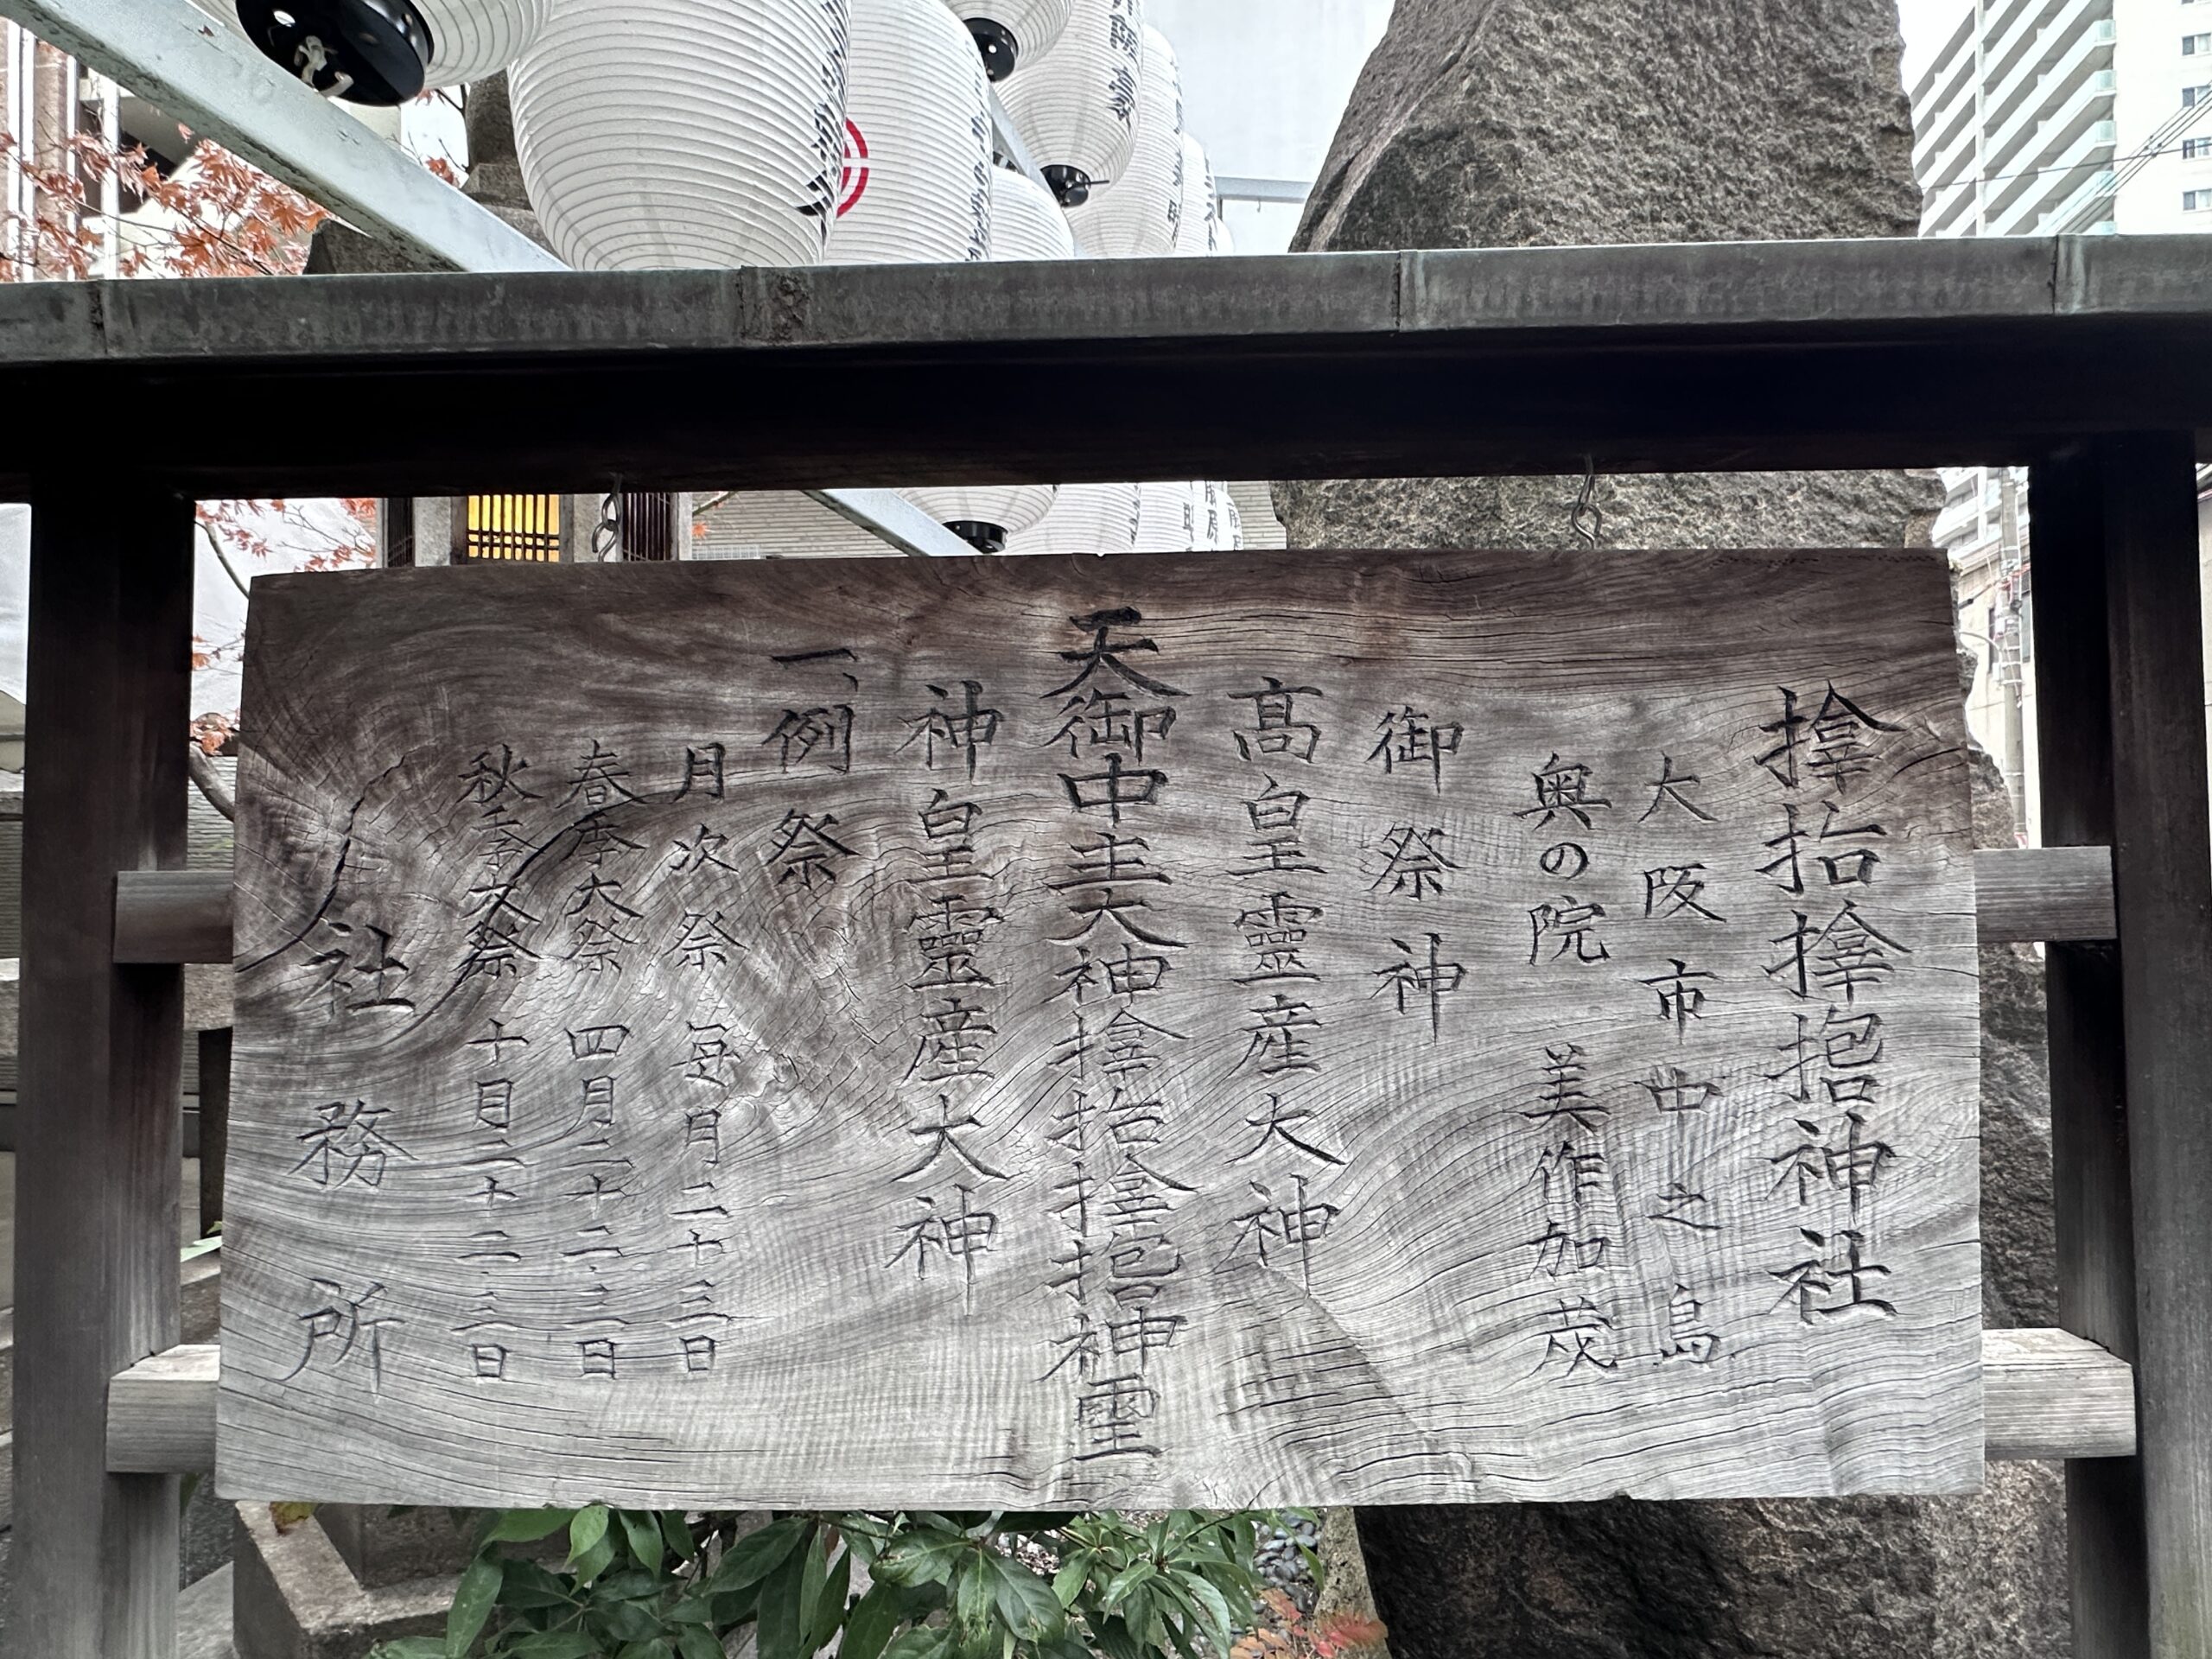 神社
大阪市中之島
奥の院 美作加茂
御祭神
髙皇靈産大神
天御中主大神 神霊
神皇靈産大神
一、例祭
月次祭 毎月二十三日
春季大祭 四月二十二・三日
秋季大祭 十月二十二・三日
社務所